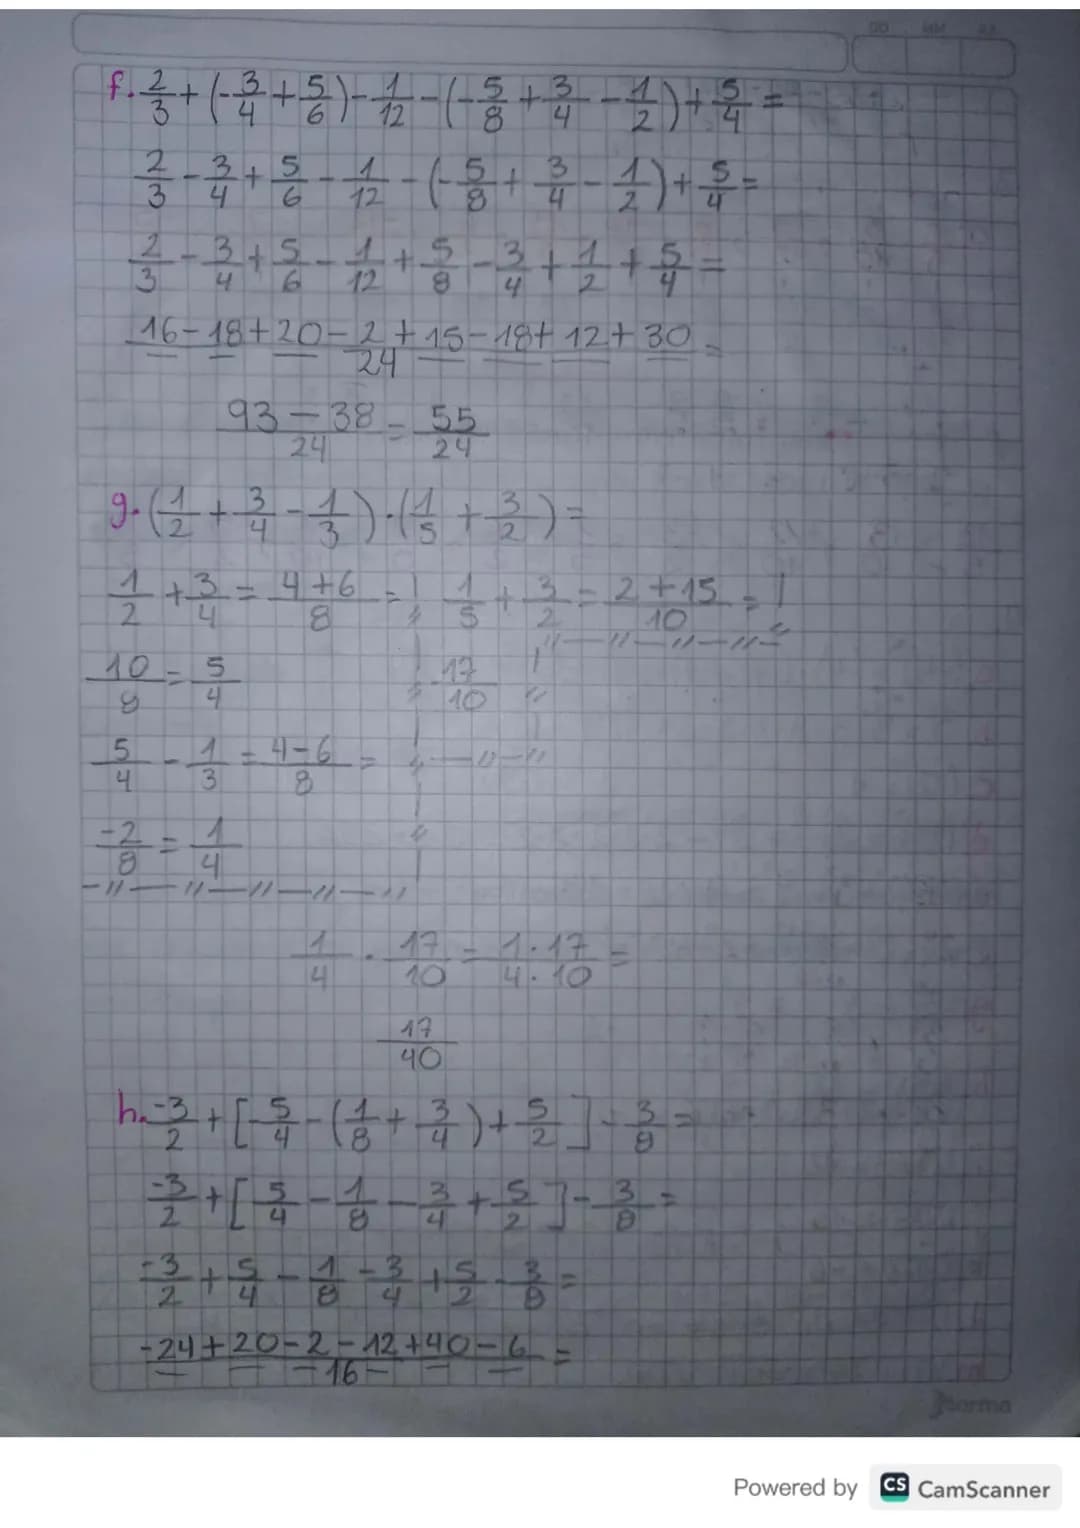 f. 2/3 + (-3/4 + 5/6) - 1/12 - (-5/8 + 3/4 - 1/2) + 5/4 =
2/3 - 3/4 + 5/6 - 1/12 - (-5/8 + 3/4 - 1/2) + 5/4 =
2/3 - 3/4 + 5/6 - 1/12 + 5/8 - 3/4 + 1/2 + 5/4 =
16-18+20-2+15-18+12+30 =
24
93-38/24 = 55/24
g. (1/2 + 3/4 - 1/3) · (1/5 + 3/2) =
1/2 + 3/4 = 4+6/8 = 1/5 + 3/2 = 2+15/10 =
10/8 = 5/4 17/10
5/4 - 1/3 = 4-6/8 =
-2/8 = 1/4
1/4 · 17/10 = 1·17/4·10 =
17/40
h. -3/2 + [5/4 - (1/8 + 3/4) + 5/2] - 3/8 =
-3/2 + [5/4 - 1/8 - 3/4 + 5/2] - 3/8 =
-3/2 + 5/4 - 1/8 - 3/4 + 5/2 - 3/8 =
-24+20-2-12+40-6 =
16
norma
Powered by CS CamScanner